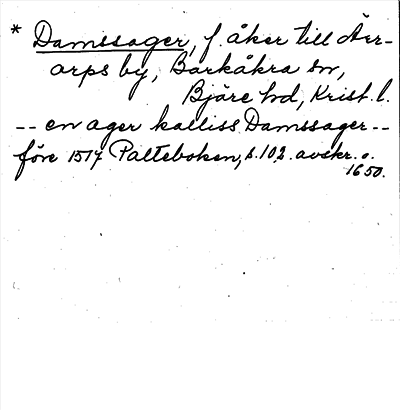 * Damssager, f. åker till Äer-
arps by, Barkåkra sn,
Bjäre hd, Krist. l.
-- en ager kalliss Damssager --
före 1517 Palteboken, s. 102. avskr. o.
1650.